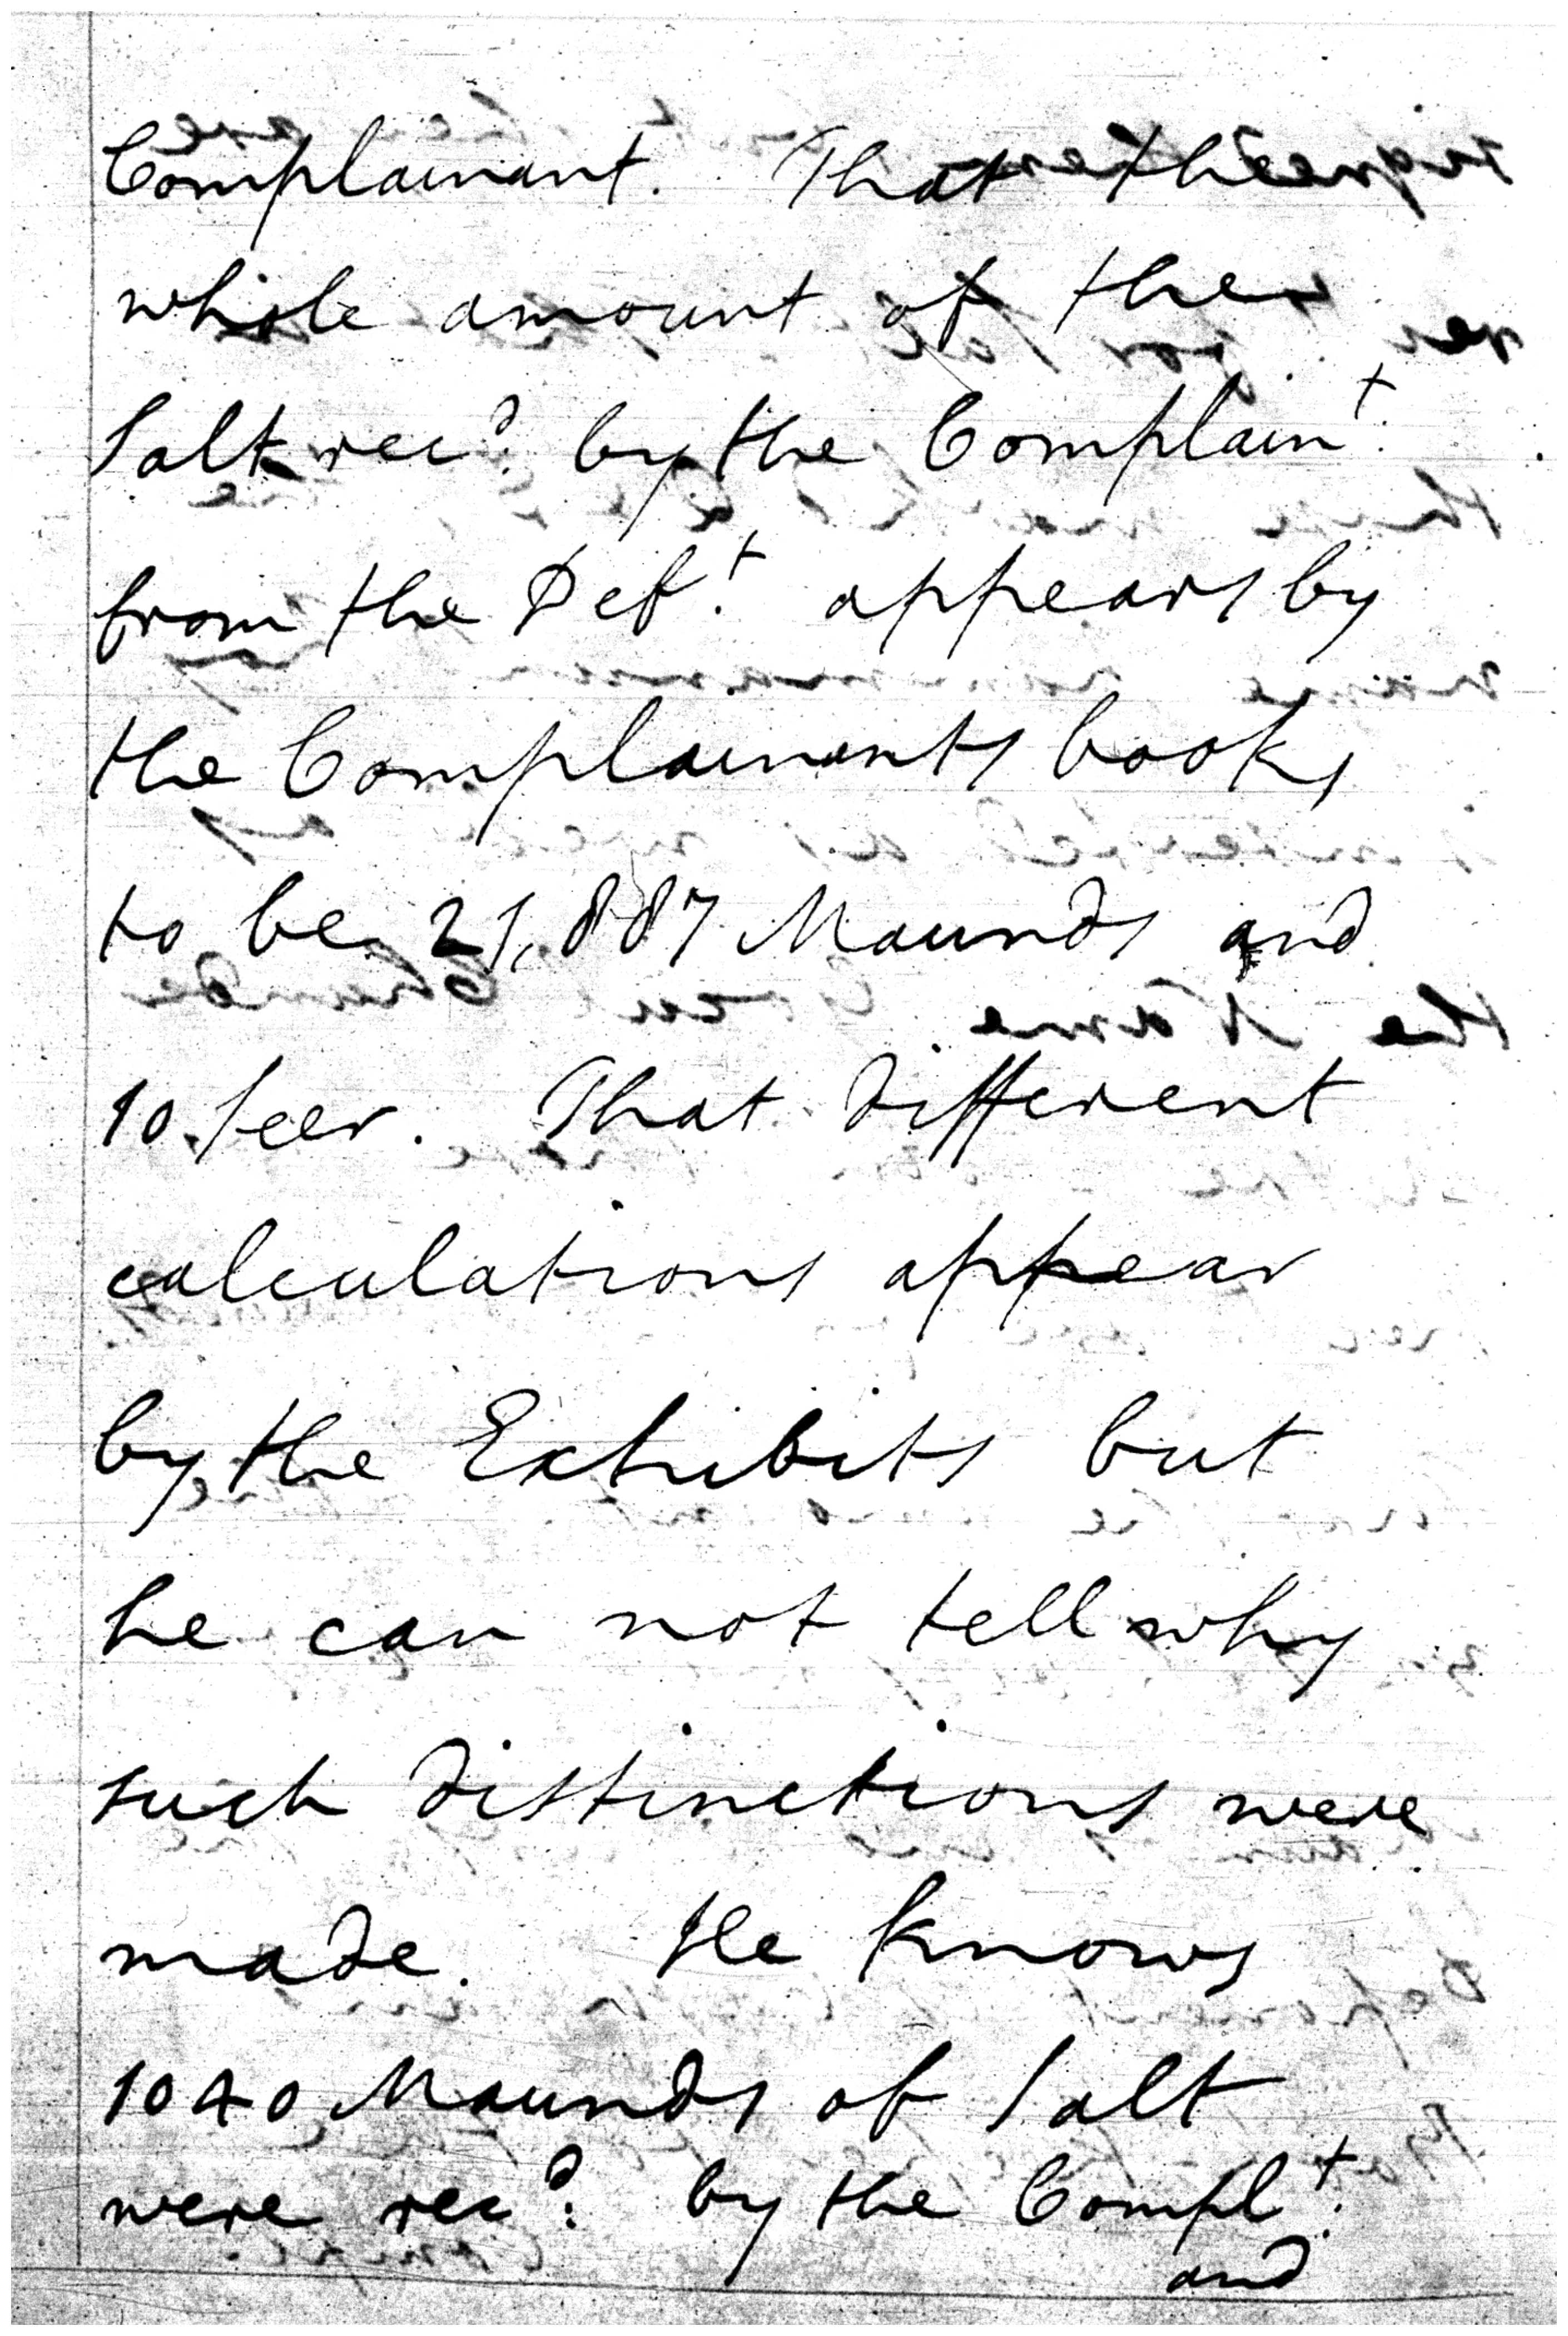 Complainant. That the
whole amount of the
Salt rec^d. by the Complain^t.
from the Def^t. appears by
the Complainants books
to be 21,887 Maunds and
10 Seer. That different
calculations appear
by the Exhibits but
he can not tell why
such distinctions were
made. He knows
1040 Maunds of Salt
were rec^d. by the Compl^t.
and